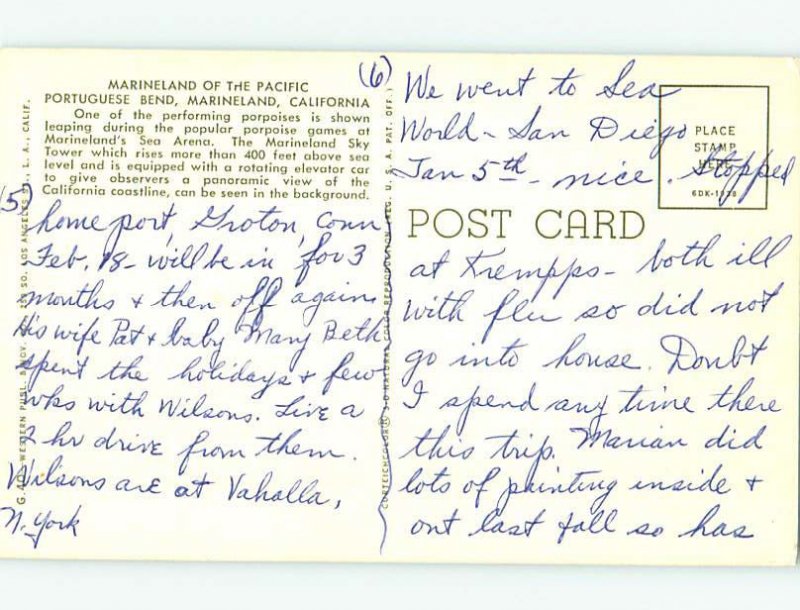 MARINELAND OF THE PACIFIC
PORTUGUESE BEND, MARINELAND, CALIFORNIA
One of the performing porpoises is shown
leaping during the popular porpoise games at
Marineland's Sea Arena. The Marineland Sky
Tower which rises more than 400 feet above sea
level and is equipped with a rotating elevator car
to give observers a panoramic view of the
California coastline, can be seen in the background.
(5)
home port, Groton, Conn
Feb. 18 - will be in for 3
months + then off again.
His wife Pat + baby Mary Beth
spent the holidays + few
wks with Wilsons. Live a
2 hr drive from them.
Wilsons are at Vahalla,
N. York
(6)
We went to Sea
World - San Diego
Jan 5th - nice. Stopped
PLACE
STAMP
HERE
6DK-1938
POST CARD
at Krempps - both ill
with flu so did not
go into house. Doubt
I spend any time there
this trip. Marian did
lots of painting inside +
out last fall so has
WESTERN PUBL. & NOV. LOS ANGELES L. A., CALIF.
CURTEICHCOLOR® 3-D NATURAL COLOR REPRODUCTION (REG. U. S. A. PAT. OFF.)